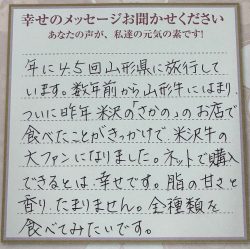 幸せのメッセージお聞かせください
あなたの声が、私達の元気の素です!
年に4.5回山形県に旅行して
います。数年前から山形牛にはまり
ついに昨年米沢の「さかの」のお店で
食べたことがきっかけで、米沢牛の
大ファンになりました。ネットで購入
できるとは、幸せです。脂の甘さと
香り、たまりません。全種類を
食べてみたいです。